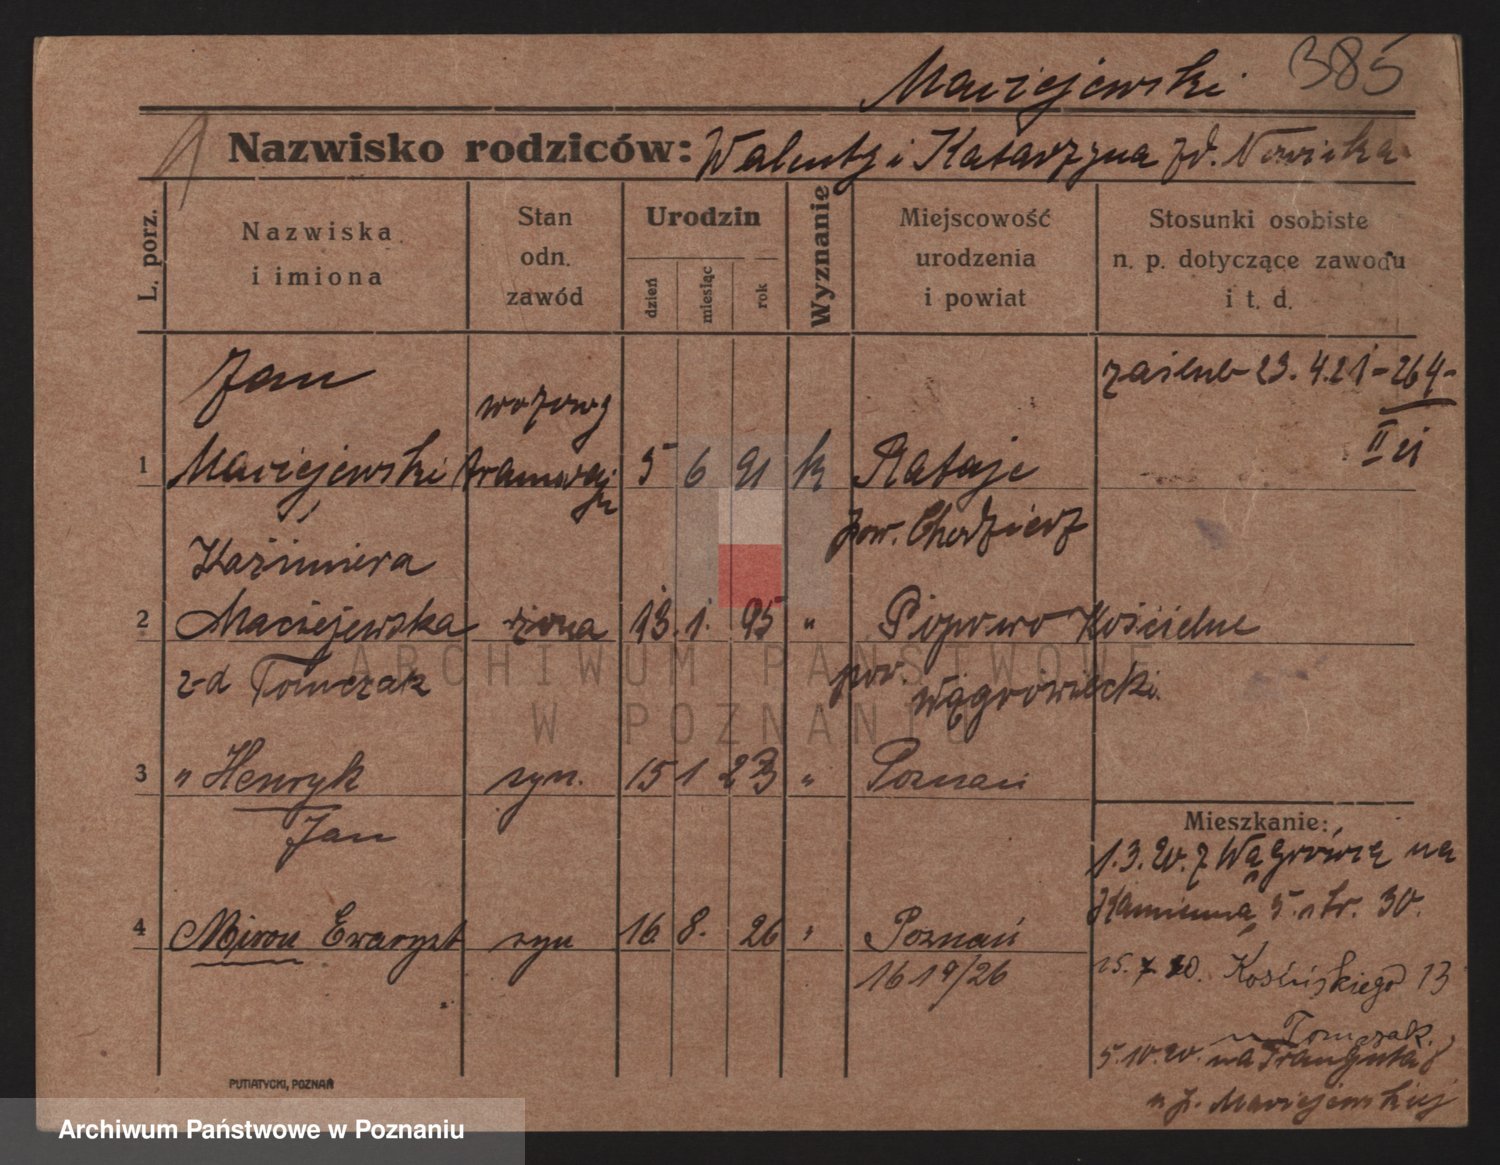 385
Maciejewski
Nazwisko rodziców: Walenty i Katarzyna zd. Nowicka
L. porz.
Nazwiska i imiona
Stan odn. zawód
Urodzin
dzień
miesiąc
rok
Wyznanie
Miejscowość urodzenia i powiat
Stosunki osobiste n. p. dotyczące zawodu i t. d.
Jan
wozowy
23. 4. 21 - 264 -
II
1 Maciejewski tramwaju 5 6 91 k Rataje
pow. Chodzież
Kaźimiera
2 Maciejewska żona 13. 1. 95 " Popowo Kościelne
z-d Tomczak pow. Wągrówiecki
3 " Henryk syn. 15 1 23 " Poznań
Jan
Mieszkanie:
1. 3. 20. z Wągrówca na
Kamienna 5. ptr. 30.
4 Miron Ewaryst syn 16 8. 26 " Poznań
1619/26
15. 7 20. Kosińskiego 13
u Tomczak.
5. 10. 20. na
u p. Maciejewskiej
PUTIATYCKI, POZNAŃ
ARCHIWUM PAŃSTWOWE
W POZNANIU
Archiwum Państwowe w Poznaniu